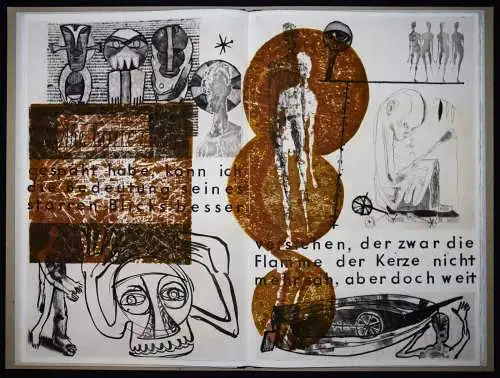 gespäht habe, kann ich
die Bedeutung seines
starren Blicks besser
verstehen, der zwar die
Flamme der Kerze nicht
mehr sah, aber doch weit